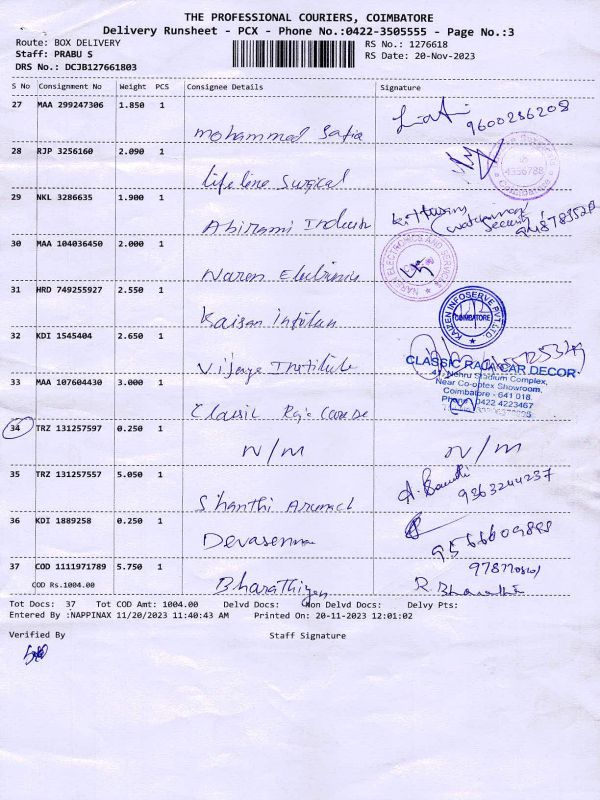 THE PROFESSIONAL COURIERS, COIMBATORE
Delivery Runsheet - PCX - Phone No.:0422-3505555 - Page No.:3
Route: BOX DELIVERY
RS No.: 1276618
Staff: PRABU S
RS Date: 20-Nov-2023
DRS No.: DCJB127661803
S No Consignment No Weight PCS Consignee Details Signature
27 MAA 299247306 1.850 1 Mohammed Safia 9600236208
28 RJP 3256160 2.090 1 Lifeline Surgical
4356788
29 NKL 3286635 1.900 1 Abirami Industr
Watchman
Security
30 MAA 104036450 2.000 1 Naren Eletronic
NAREN ELECTRONICS AND SERVICES
31 HRD 749255927 2.550 1 Kaizen Infotan
KAIZEN INFOSERVE PVT LTD
COIMBATORE
32 KDI 1545404 2.650 1 Vijaya Institute
CLASSIC RAJA CAR DECOR
41, Nehru Stadium Complex,
Near Co-optex Showroom,
Coimbatore - 641 018.
Phone: 0422 4223467
33 MAA 107604430 3.000 1 Classic Raja Car De
34 TRZ 131257597 0.250 1 N/M N/M
35 TRZ 131257557 5.050 1 Shanthi 9363244237
36 KDI 1889258 0.250 1 Devasenna
37 COD 1111971789 5.750 1 Bharathiyar R Bharathi
COD Rs.1004.00
Tot Docs: 37 Tot COD Amt: 1004.00 Delvd Docs: Non Delvd Docs: Delvy Pts:
Entered By :NAPPINAX 11/20/2023 11:40:43 AM Printed On: 20-11-2023 12:01:02
Verified By Staff Signature